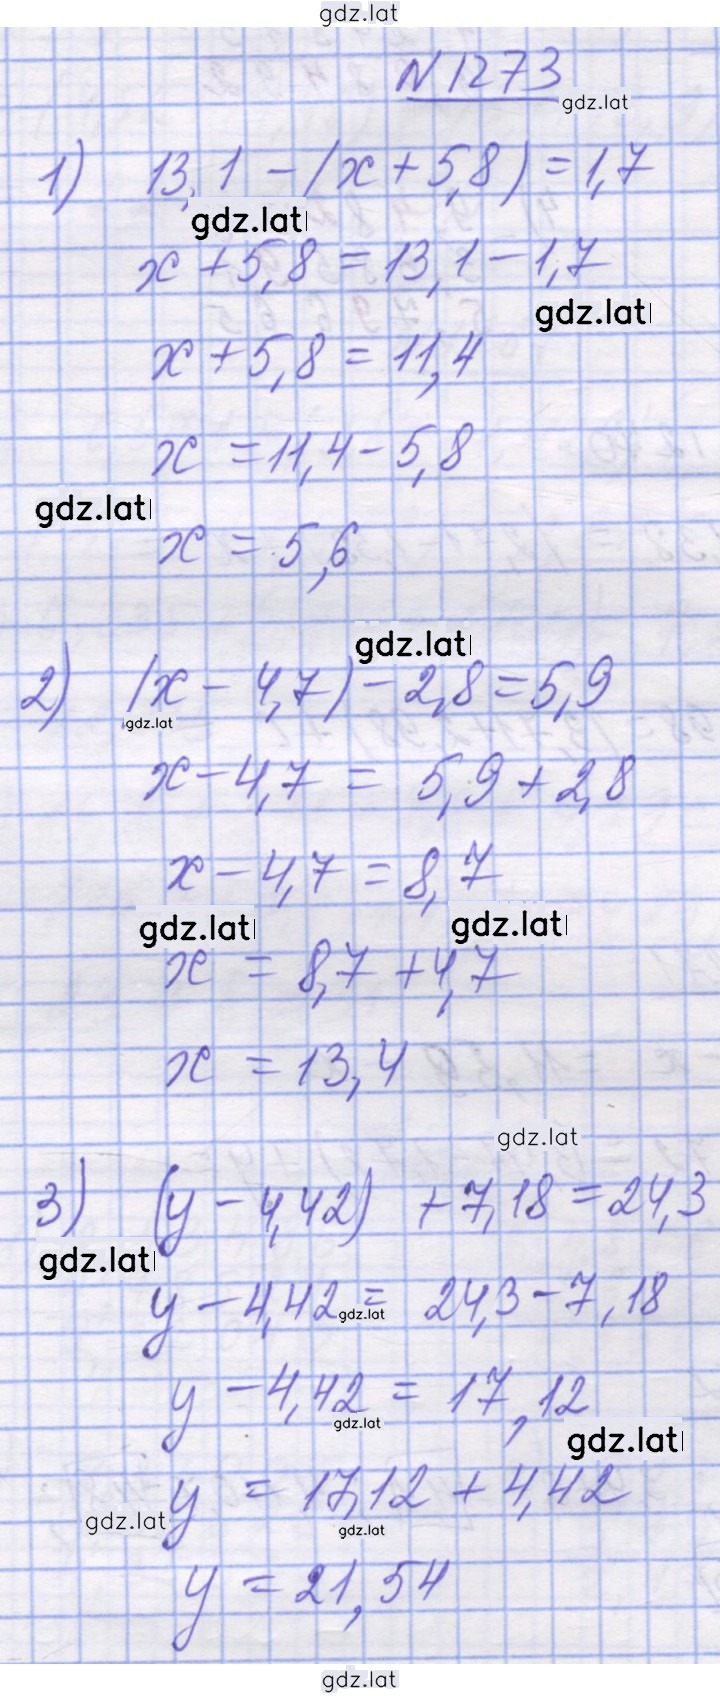 gdz.lat
N 1273
gdz.lat
1) 13,1 - (x + 5,8) = 1,7
gdz.lat
x + 5,8 = 13,1 - 1,7
gdz.lat
x + 5,8 = 11,4
x = 11,4 - 5,8
gdz.lat
x = 5,6
gdz.lat
2) (x - 4,7) - 2,8 = 5,9
gdz.lat
x - 4,7 = 5,9 + 2,8
x - 4,7 = 8,7
gdz.lat gdz.lat
x = 8,7 + 4,7
x = 13,4
gdz.lat
3) (y - 4,42) + 7,18 = 24,3
gdz.lat
y - 4,42 = 24,3 - 7,18
gdz.lat
y - 4,42 = 17,12
gdz.lat
gdz.lat
y = 17,12 + 4,42
gdz.lat
gdz.lat
y = 21,54
gdz.lat